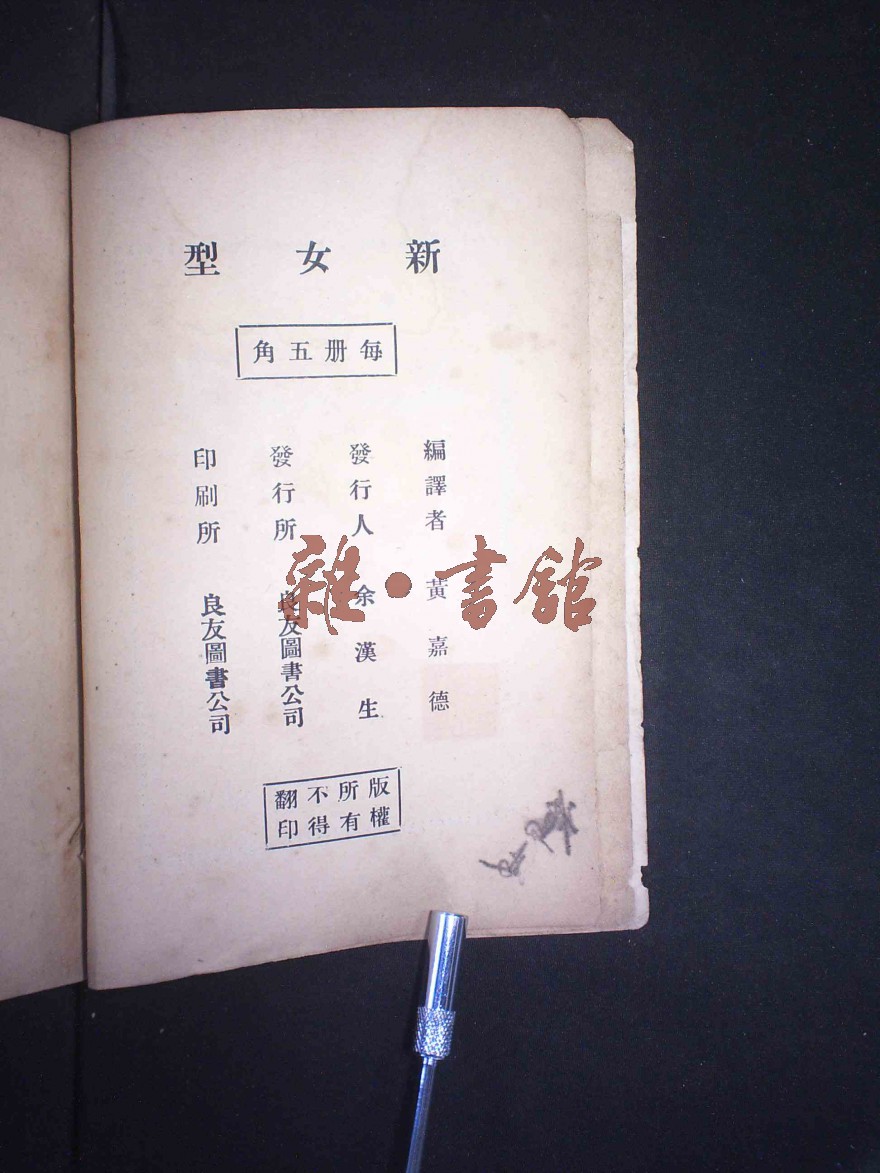 新女型
每册五角
編譯者 黃嘉德
發行人 余漢生
發行所 良友圖書公司
印刷所 良友圖書公司
版權所有不得翻印
雜·書館